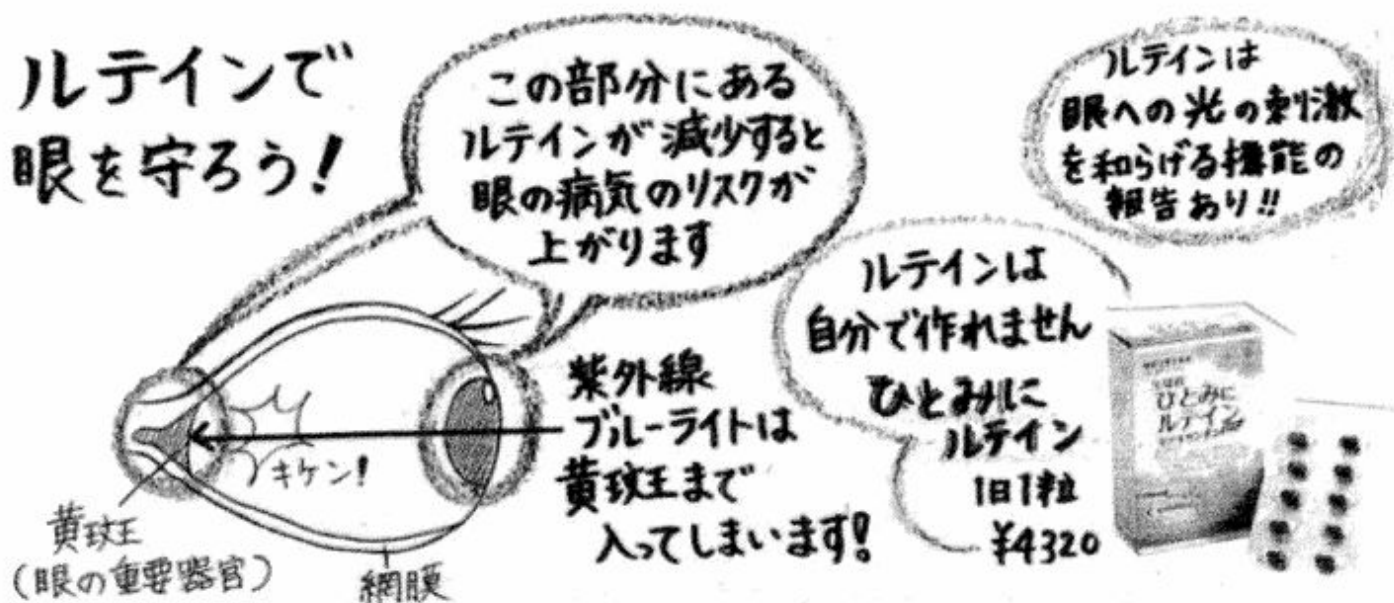 ルテインで
眼を守ろう!
この部分にある
ルテインが減少すると
眼の病気のリスクが
上がります
ルテインは
眼への光の刺激
を和らげる機能の
報告あり!!
ルテインは
自分で作れません
ひとみに
ルテイン
1日1粒
¥4320
紫外線
ブルーライトは
黄玟王まで
入ってしまいます!
キケン!
黄玟王
(眼の重要器官)
網膜
ひとみに
ルテイン